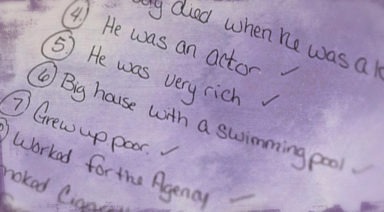 died when he was a k
(4) He was an actor ✓
(5) He was very rich ✓
(6) Big house with a swimming pool ✓
(7) Grew up poor. ✓
Worked for the Agency ✓